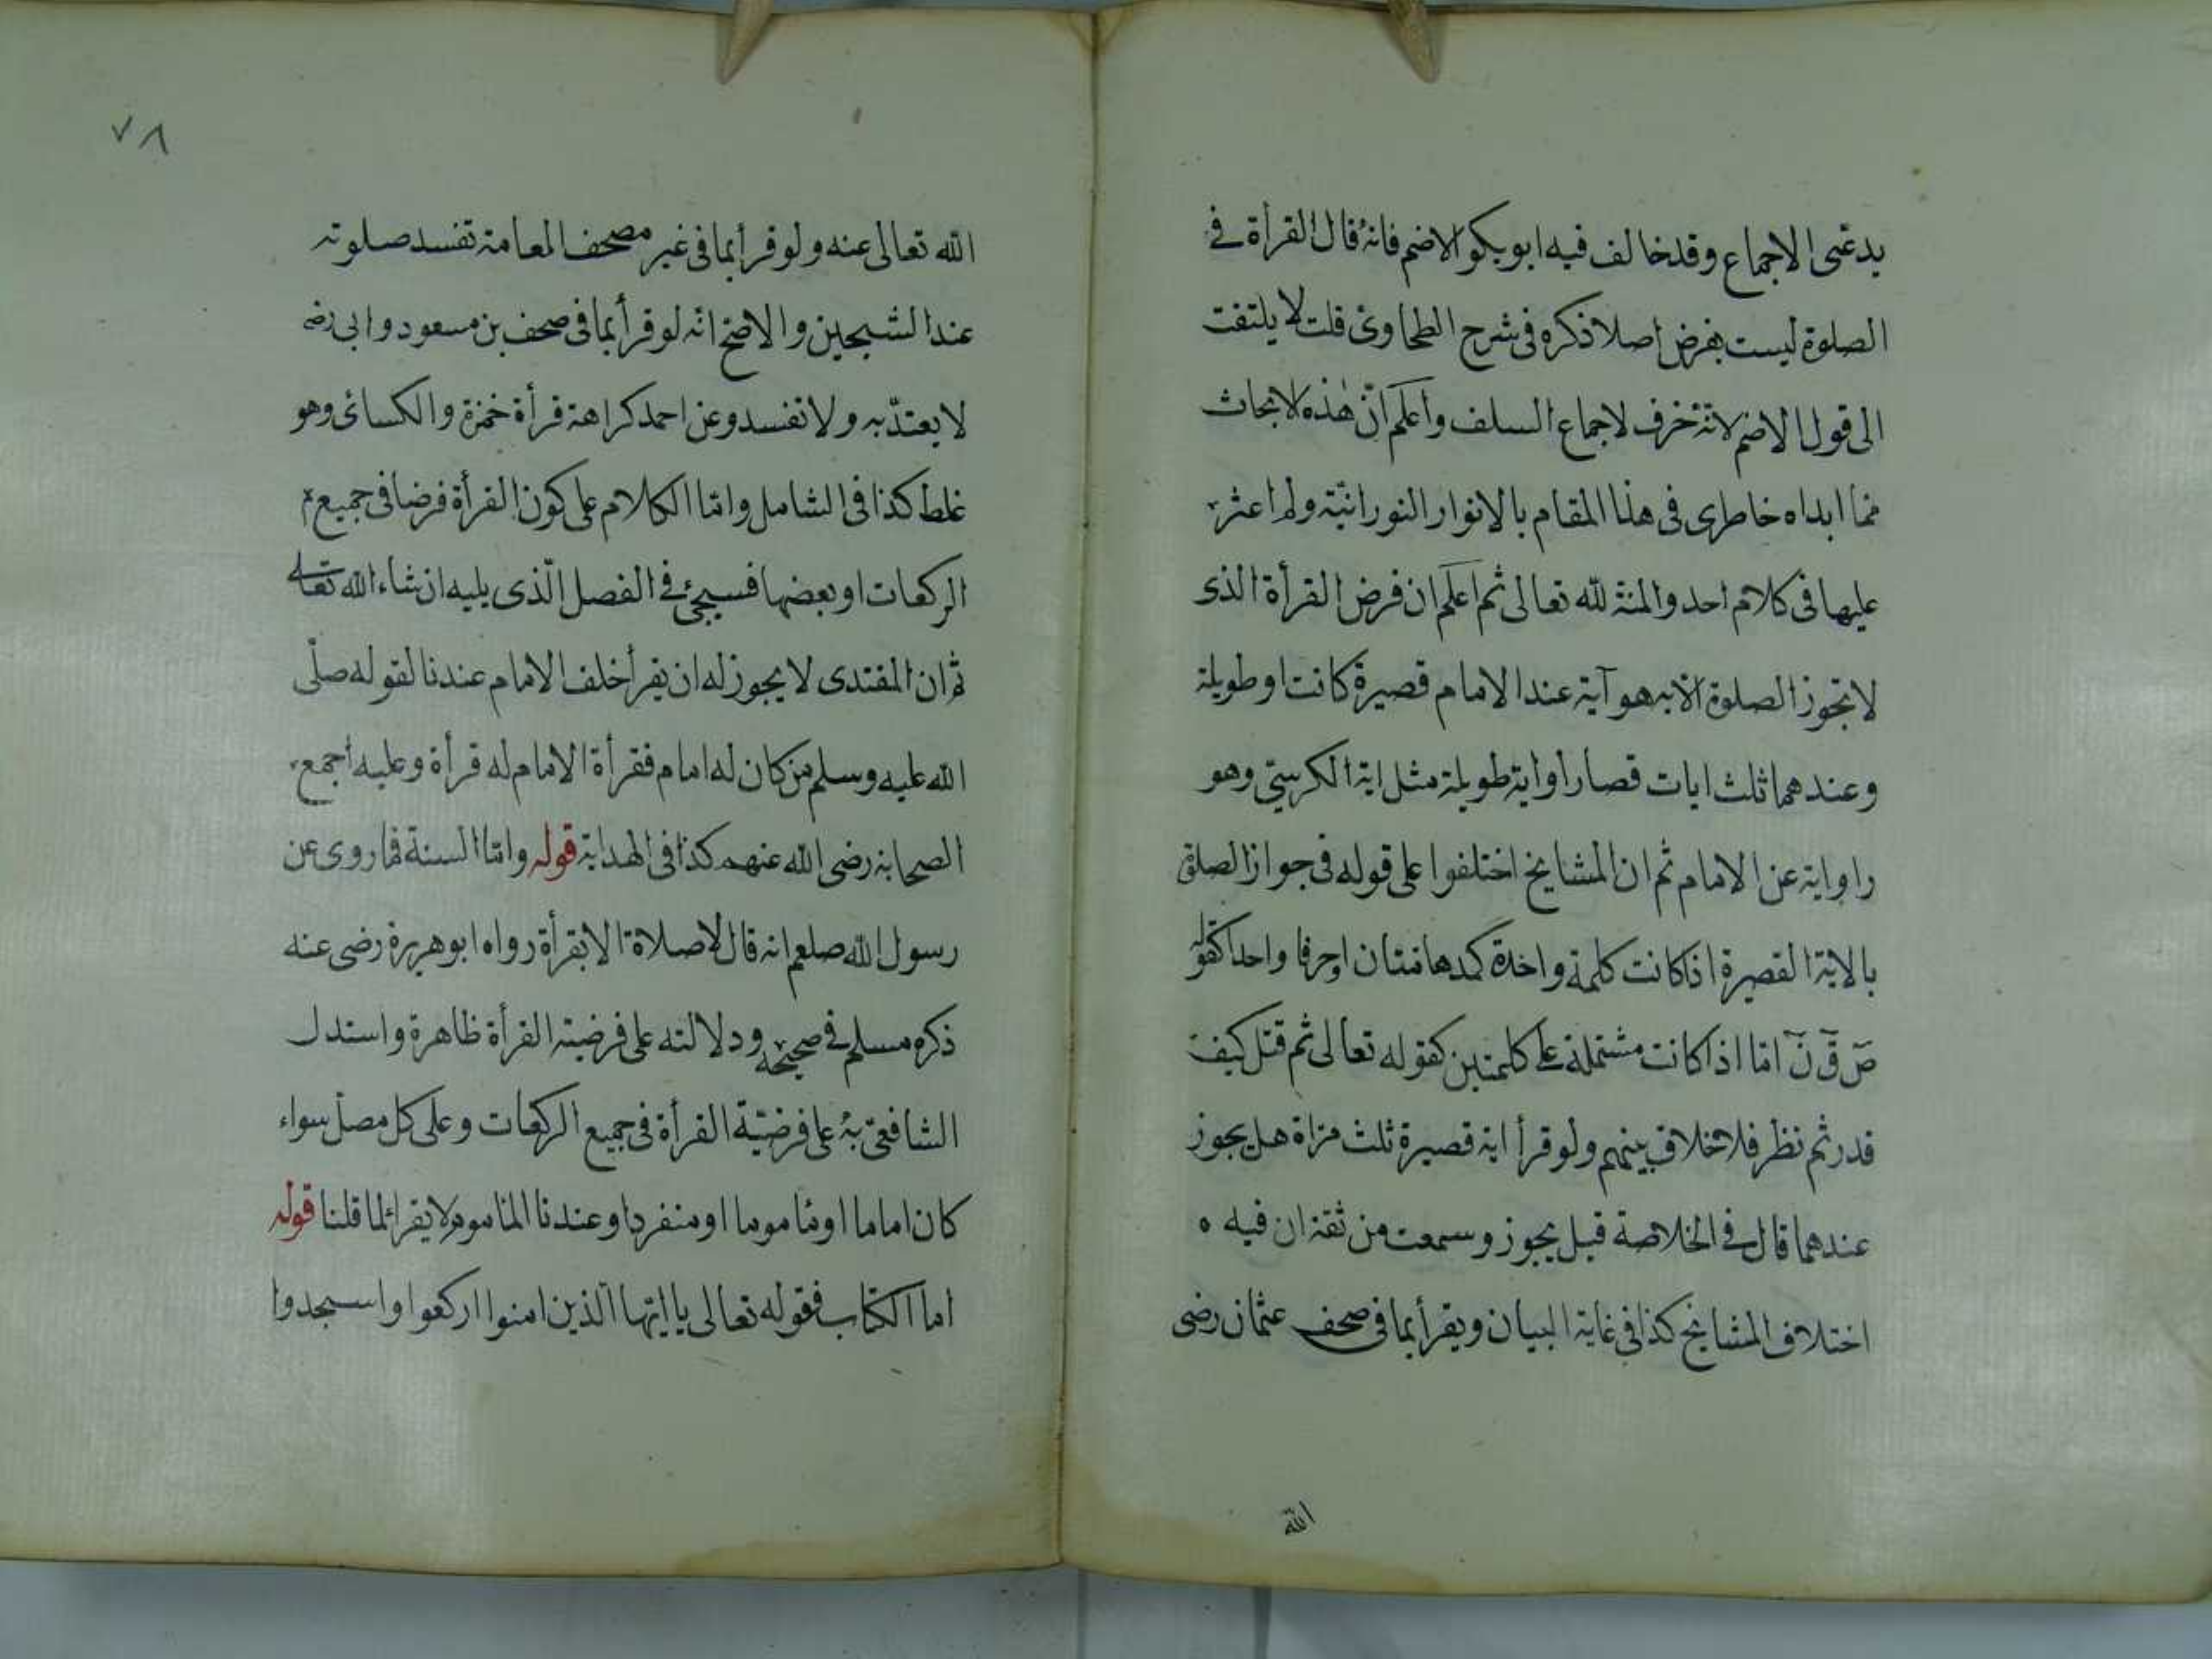 يدعى الاجماع وقد خالف فيه ابو بكر الاصم فانه قال القرأة فى
الصلوة ليست بفرض اصلا ذكره فى شرح الطحاوى قلت لا يلتفت
الى قول الاصم لانه خرف لاجماع السلف واعلم ان هذه الابحاث
مما ابداه خاطرى فى هذا المقام بالانوار النورانية ولم اعثر
عليها فى كلام احد والمنة لله تعالى ثم اعلم ان فرض القرأة الذى
لا تجوز الصلوة الا به هو آية عند الامام قصيرة كانت او طويلة
وعندهما ثلث ايات قصار او اية طويلة مثل اية الكرسي وهو
راواية عن الامام ثم ان المشايخ اختلفوا على قوله فى جواز الصلوة
بالاية القصيرة اذا كانت كلمة واحدة كمدهامتان او حرفا واحدا كقوله
ص ق ن اما اذا كانت مشتملة على كلمتين كقوله تعالى ثم قتل كيف
قدر ثم نظر فلا خلاف بينهم ولو قرأ اية قصيرة ثلث مراة هل يجوز
عندهما قال فى الخلاصة قيل يجوز وسمعت من ثقة ان فيه ه
اختلاف المشايخ كذا فى غاية البيان ويقرأ بما فى صحف عثمان رضى
الله
٧٨
الله تعالى عنه ولو قرأ بما فى غير مصحف المعامة تفسد صلوته
عند الشيخين والاصح انه لو قرأ بما فى صحف بن مسعود وابى رضه
لا يعتد به ولا تفسد وعن احمد كراهة قرأة حمزة والكسائى وهو
غلط كذا فى الشامل واما الكلام على كون القرأة فرضا فى جميع
الركعات او بعضها فسيجئ فى الفصل الذى يليه ان شاء الله تعالى
ثم ان المقتدى لا يجوز له ان يقرأ خلف الامام عندنا لقوله صلى
الله عليه وسلم من كان له امام فقرأة الامام له قرأة وعليه اجمع
الصحابة رضى الله عنهم كذا فى الهداية قوله واما السنة فما روى عن
رسول الله صلعم انه قال لا صلاة الا بقرأة رواه ابو هريرة رضى عنه
ذكره مسلم فى صحيحه ودلالته على فرضية القرأة ظاهرة واستدل
الشافعى به على فرضية القرأة فى جميع الركعات وعلى كل مصل سواء
كان اماما او مأموما او منفردا وعندنا المأموم لا يقرأ لما قلنا قوله
اما الكتاب فقوله تعالى يا ايها الذين امنوا اركعوا واسجدوا